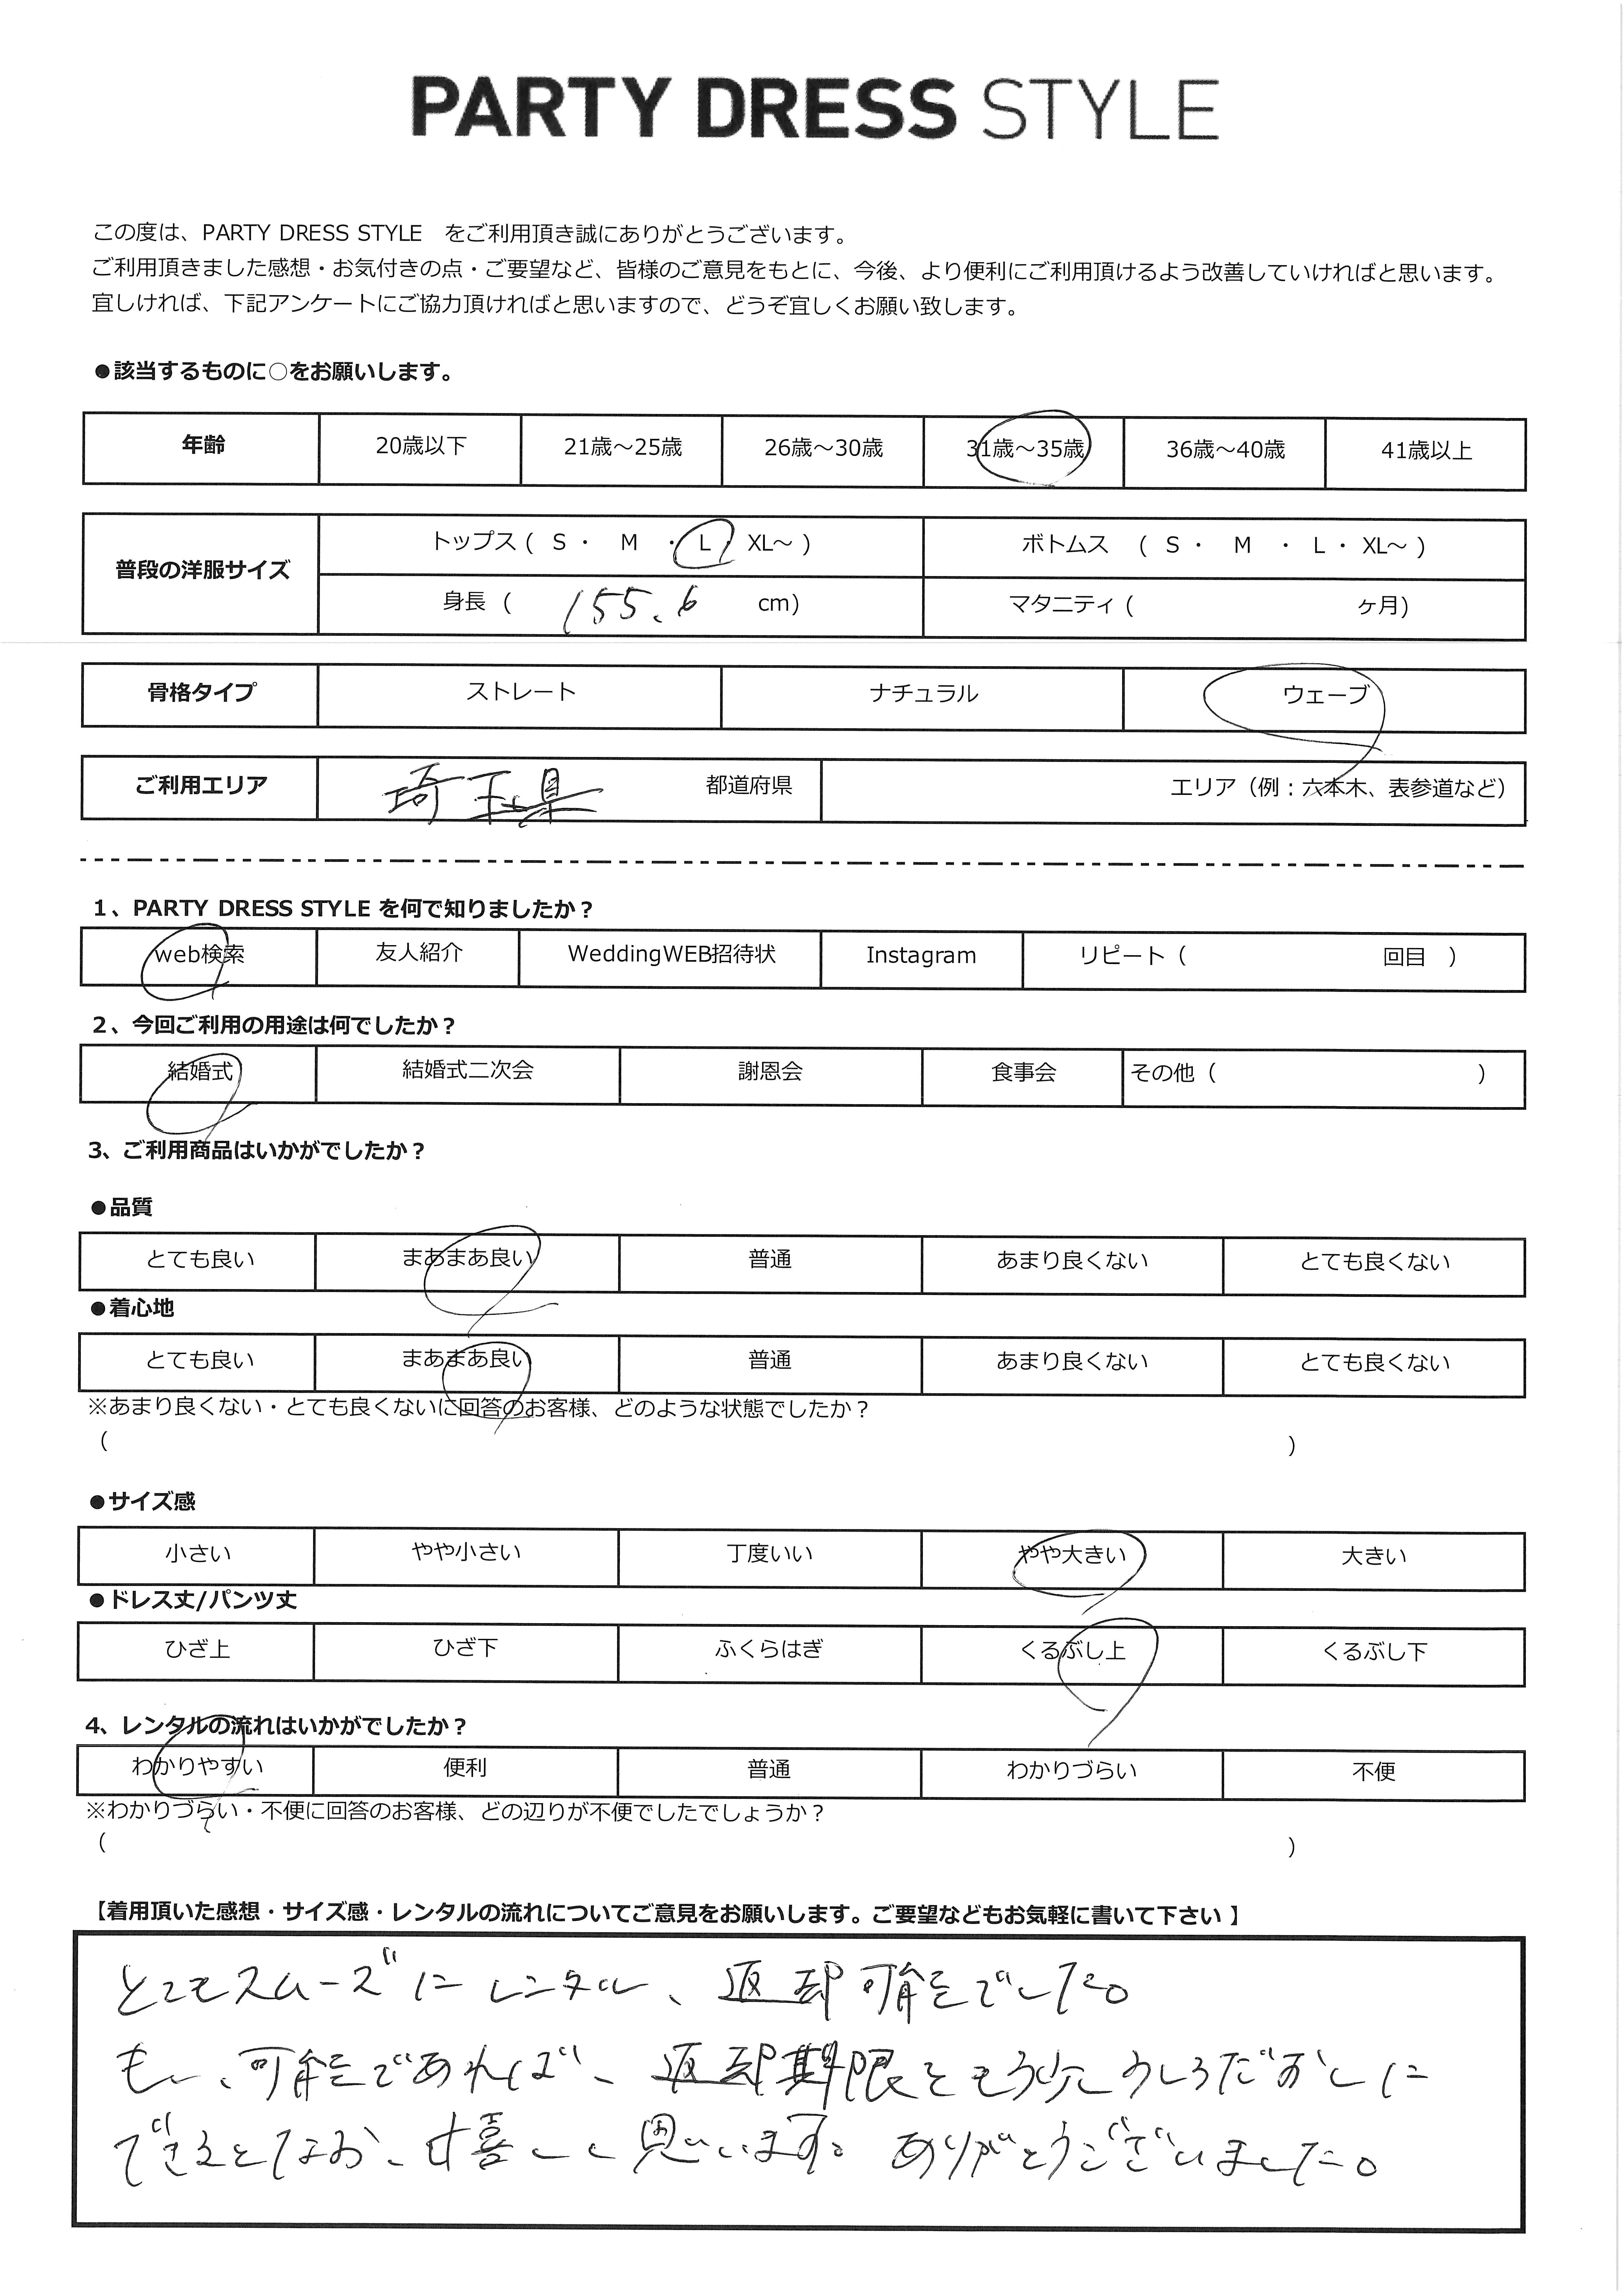 PARTY DRESS STYLE
この度は、PARTY DRESS STYLE をご利用頂き誠にありがとうございます。
ご利用頂きました感想・お気付きの点・ご要望など、皆様のご意見をもとに、今後、より便利にご利用頂けるよう改善していければと思います。
宜しければ、下記アンケートにご協力頂ければと思いますので、どうぞ宜しくお願い致します。
●該当するものに○をお願いします。
年齢 20歳以下 21歳～25歳 26歳～30歳 31歳～35歳 36歳～40歳 41歳以上
普段の洋服サイズ
トップス ( S ・ M ・ L ・ XL～ ) ボトムス ( S ・ M ・ L ・ XL～ )
身長 ( 155.6 cm) マタニティ ( ヶ月)
骨格タイプ ストレート ナチュラル ウェーブ
ご利用エリア 埼玉県 都道府県 エリア（例：六本木、表参道など）
1、PARTY DRESS STYLE を何で知りましたか？
web検索 友人紹介 WeddingWEB招待状 Instagram リピート（ 回目 ）
2、今回ご利用の用途は何でしたか？
結婚式 結婚式二次会 謝恩会 食事会 その他（ ）
3、ご利用商品はいかがでしたか？
●品質
とても良い まあまあ良い 普通 あまり良くない とても良くない
●着心地
とても良い まあまあ良い 普通 あまり良くない とても良くない
※あまり良くない・とても良くないに回答のお客様、どのような状態でしたか？
（ ）
●サイズ感
小さい やや小さい 丁度いい やや大きい 大きい
●ドレス丈/パンツ丈
ひざ上 ひざ下 ふくらはぎ くるぶし上 くるぶし下
4、レンタルの流れはいかがでしたか？
わかりやすい 便利 普通 わかりづらい 不便
※わかりづらい・不便に回答のお客様、どの辺りが不便でしたでしょうか？
（ ）
【着用頂いた感想・サイズ感・レンタルの流れについてご意見をお願いします。ご要望などもお気軽に書いて下さい 】
とてもスムーズに レンタル、返却可能でした。
もし、可能であれば、返却期限をもう少しうしろだおしに
できるとなお、嬉しく思います。ありがとうございました。